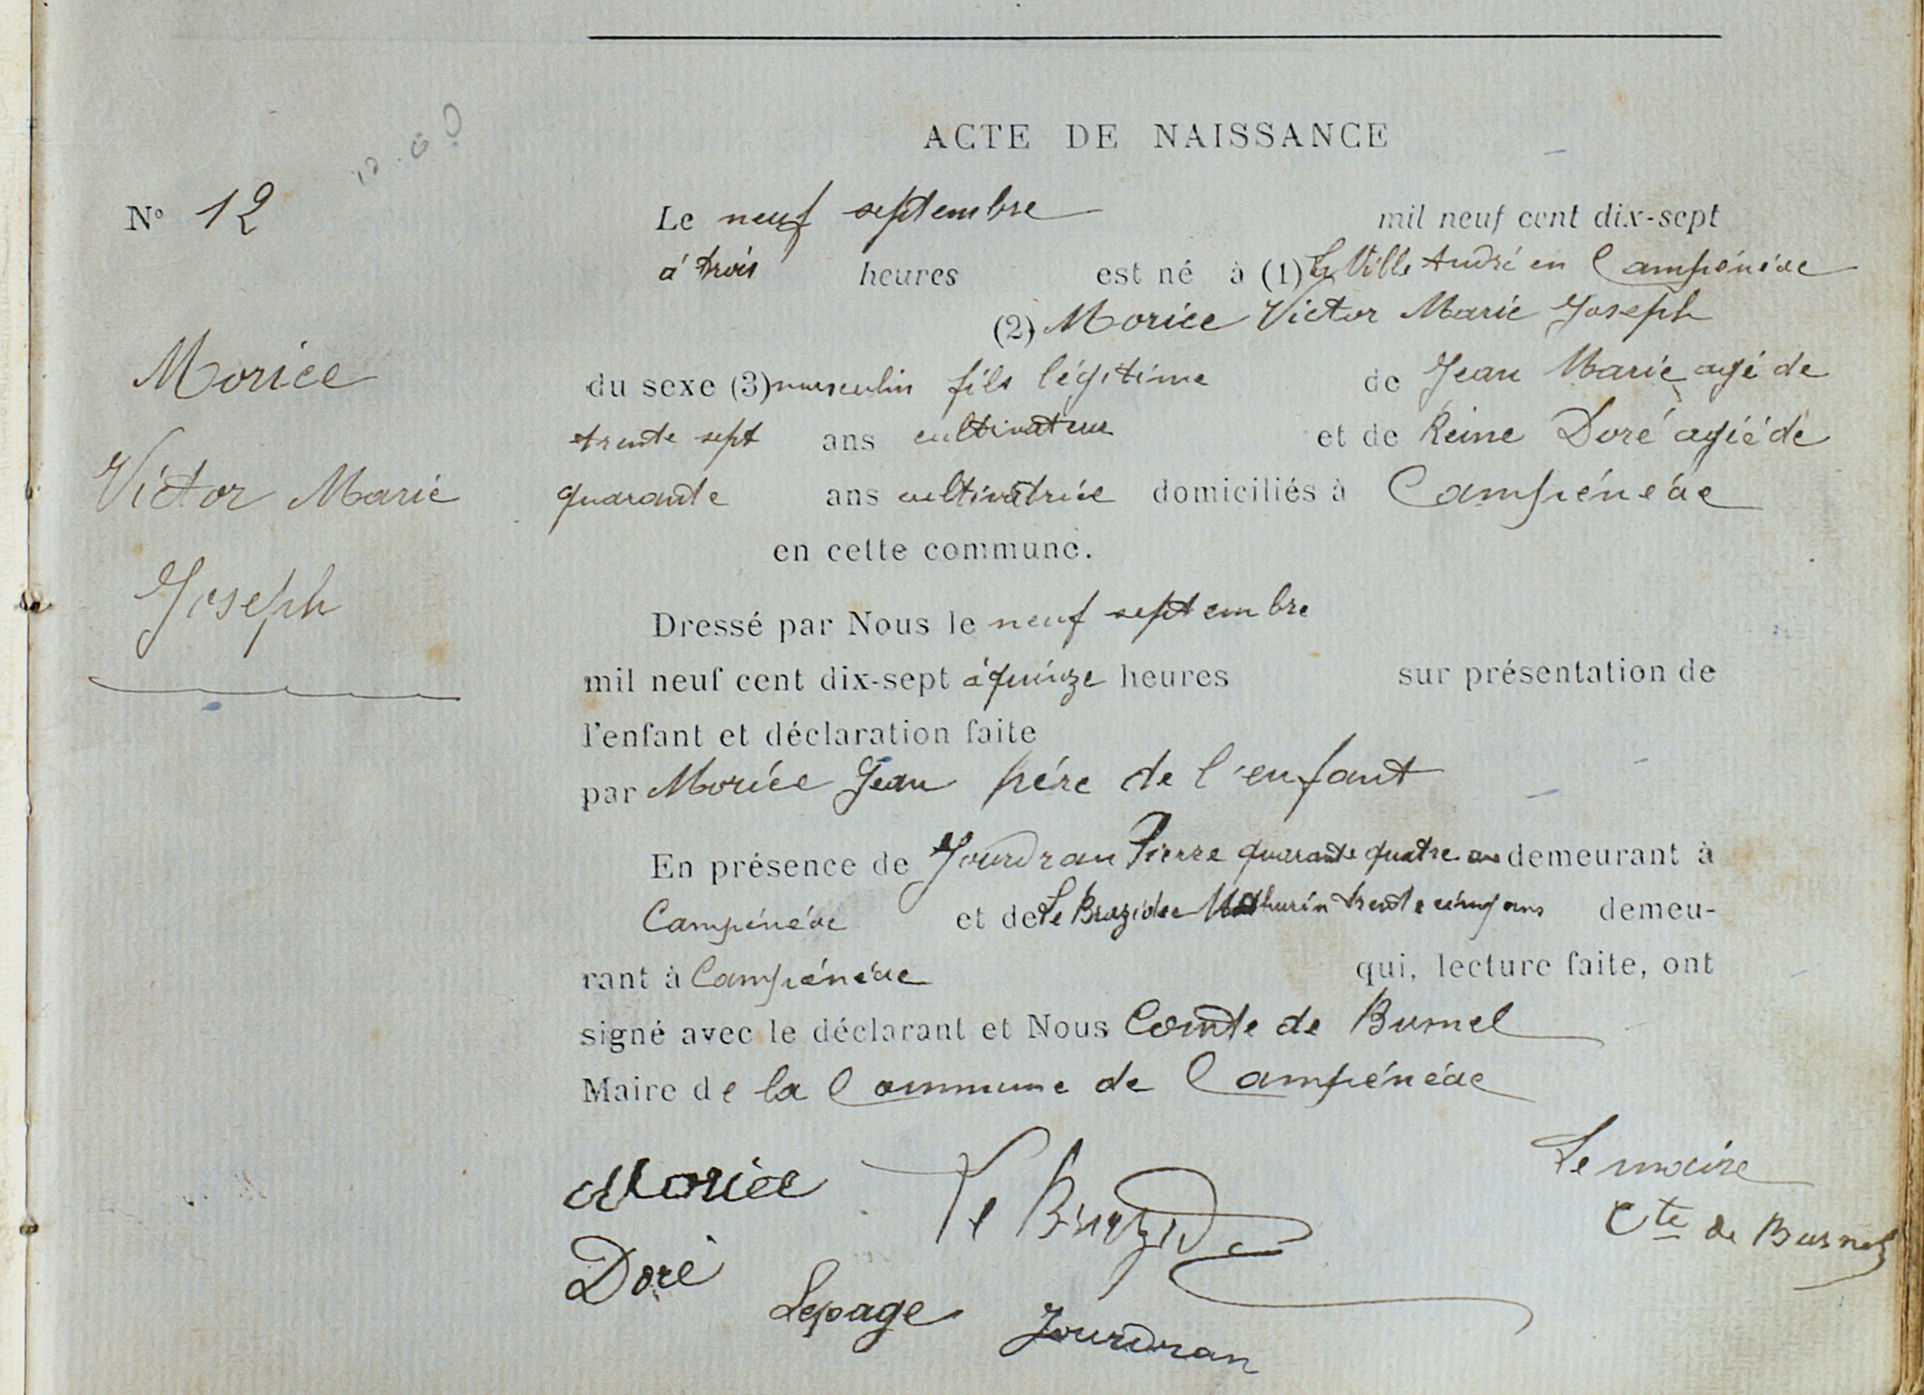 ACTE DE NAISSANCE
N° 12
Morice
Victor Marie
Joseph
Le neuf septembre mil neuf cent dix-sept
à trois heures est né à (1) La Ville André en Campénéac
(2) Morice Victor Marie Joseph
du sexe (3) masculin fils légitime de Jean Marie agé de
trente sept ans cultivateur et de Reine Doré agée de
quarante ans cultivatrice domiciliés à Campénéac
en cette commune.
Dressé par Nous le neuf septembre
mil neuf cent dix-sept à quinze heures sur présentation de
l'enfant et déclaration faite
par Morice Jean père de l'enfant
En présence de Jourdran Pierre quarante quatre ans demeurant à
Campénéac et de Le Brazidec Mathurin trente cinq ans demeu-
rant à Campénéac qui, lecture faite, ont
signé avec le déclarant et Nous Comte de Busnel
Maire de la Commune de Campénéac
Morice Le Brazidec Le maire
Cte de Busnel
Doré
Lepage Jourdran